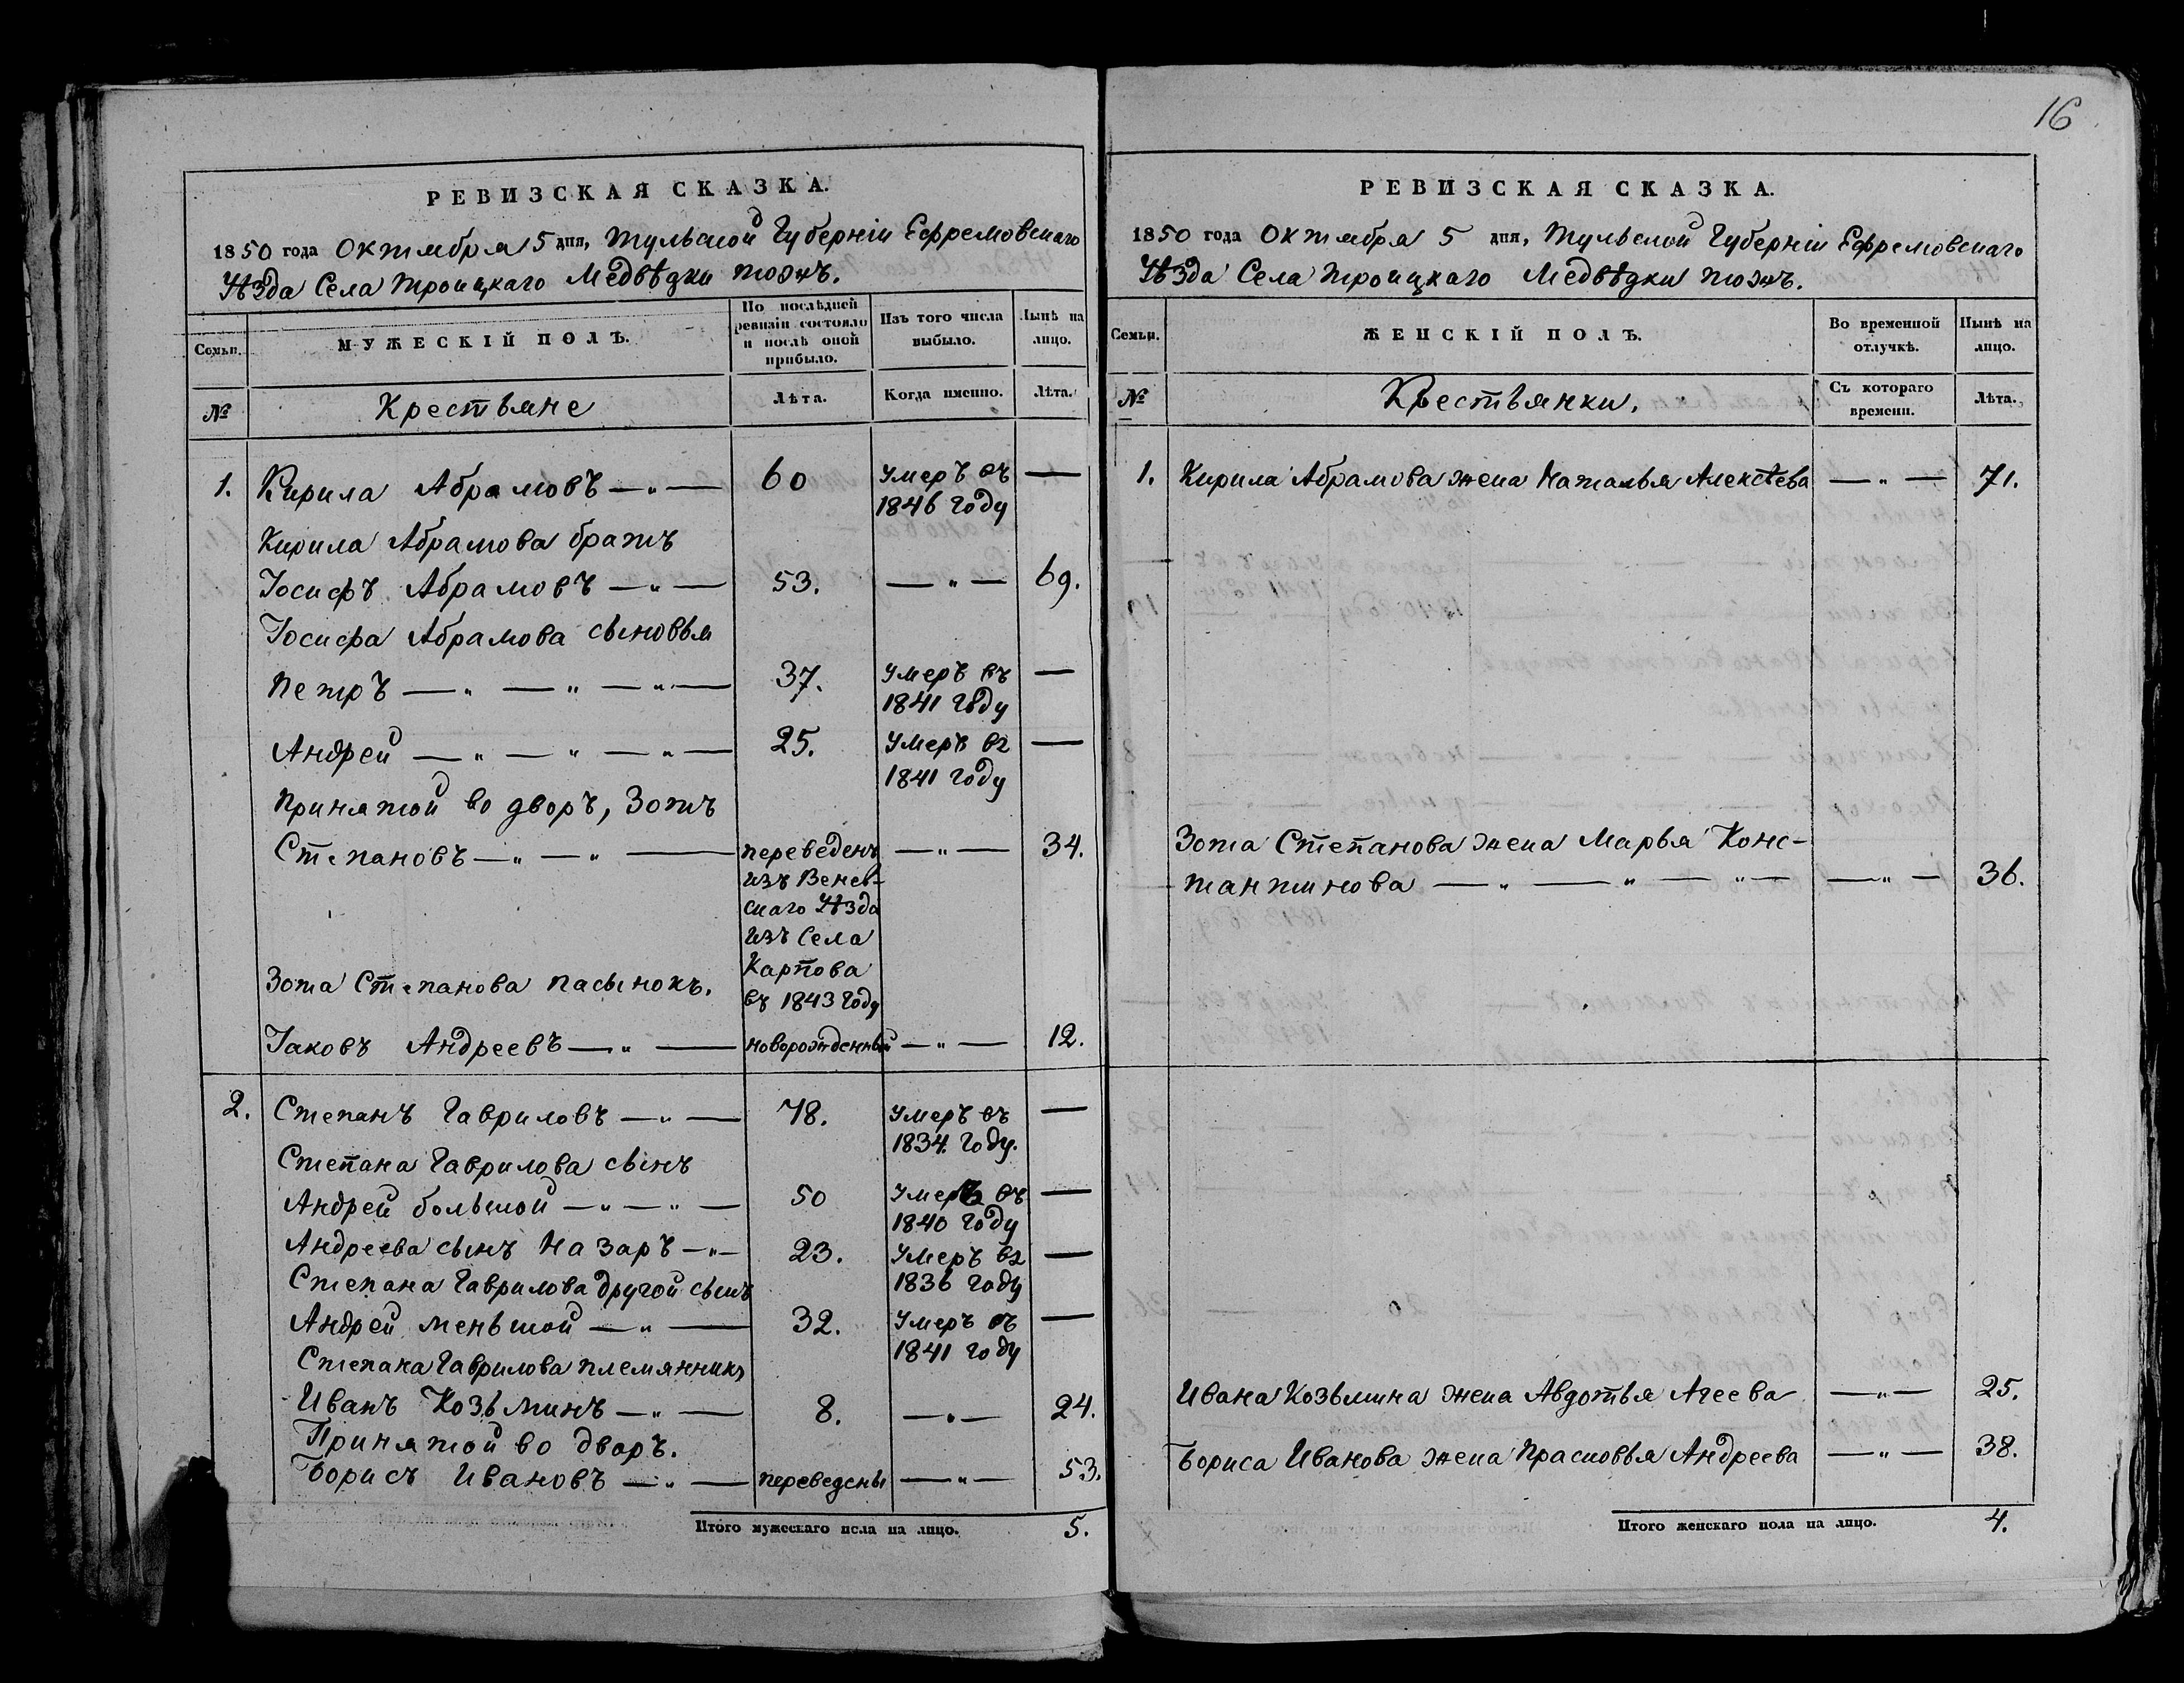 16
РЕВИЗСКАЯ СКАЗКА.
1850 года Октября 5 дня, Тульской Губерніи Ефремовскаго
Уѣзда Села Троицкаго Медвѣдки тожъ.
Семьи.
МУЖЕСКІЙ ПОЛЪ.
По послѣдней
ревизіи состояло
и послѣ оной
прибыло.
Изъ того числа
выбыло.
Нынѣ на
лицо.
№
Крестьяне
Лѣта.
Когда именно.
Лѣта.
1. Кирила Абрамовъ —„— 60 Умеръ въ —
1846 году
Кирила Абрамова братъ
Іосифъ Абрамовъ —„— 53. —„— 69.
Іосифа Абрамова сыновья
Петръ —„—„—„— 37. Умеръ въ —
1841 году
Андрей —„—„—„— 25. Умеръ въ —
1841 году
Принятой во дворъ, Зотъ
Степановъ —„—„— переведенъ —„— 34.
изъ Венев-
скаго Уѣзда
изъ Села
Карпова
въ 1843 году
Зота Степанова пасынокъ.
Іаковъ Андреевъ —„— новорожденный —„— 12.
2. Степанъ Гавриловъ —„— 78. Умеръ въ —
1834. году.
Степана Гаврилова сынъ
Андрей большой —„—„— 50 Умеръ въ —
1840 году
Андреева сынъ Назаръ —„— 23. Умеръ въ —
1836 году
Степана Гаврилова другой сынъ
Андрей меньшой —„— 32. Умеръ въ —
1841 году
Степана Гаврилова племянникъ
Иванъ Козьминъ —„— 8. —„— 24.
Принятой во дворъ.
Борисъ Ивановъ —„— переведены —„— 53.
Итого мужескаго пола на лицо. 5.
РЕВИЗСКАЯ СКАЗКА.
1850 года Октября 5 дня, Тульской Губерніи Ефремовскаго
Уѣзда Села Троицкаго Медвѣдки тожъ.
Семьи.
ЖЕНСКІЙ ПОЛЪ.
Во временной
отлучкѣ.
Нынѣ на
лицо.
№
Крестьянки.
Съ котораго
времени.
Лѣта.
1. Кирила Абрамова жена Наталья Алексѣева —„— 71.
Зота Степанова жена Марья Конс-
тантинова —„—„—„— —„— 36.
Ивана Козьмина жена Авдотья Агеева —„— 25.
Бориса Иванова жена Прасковья Андреева —„— 38.
Итого женскаго пола на лицо. 4.